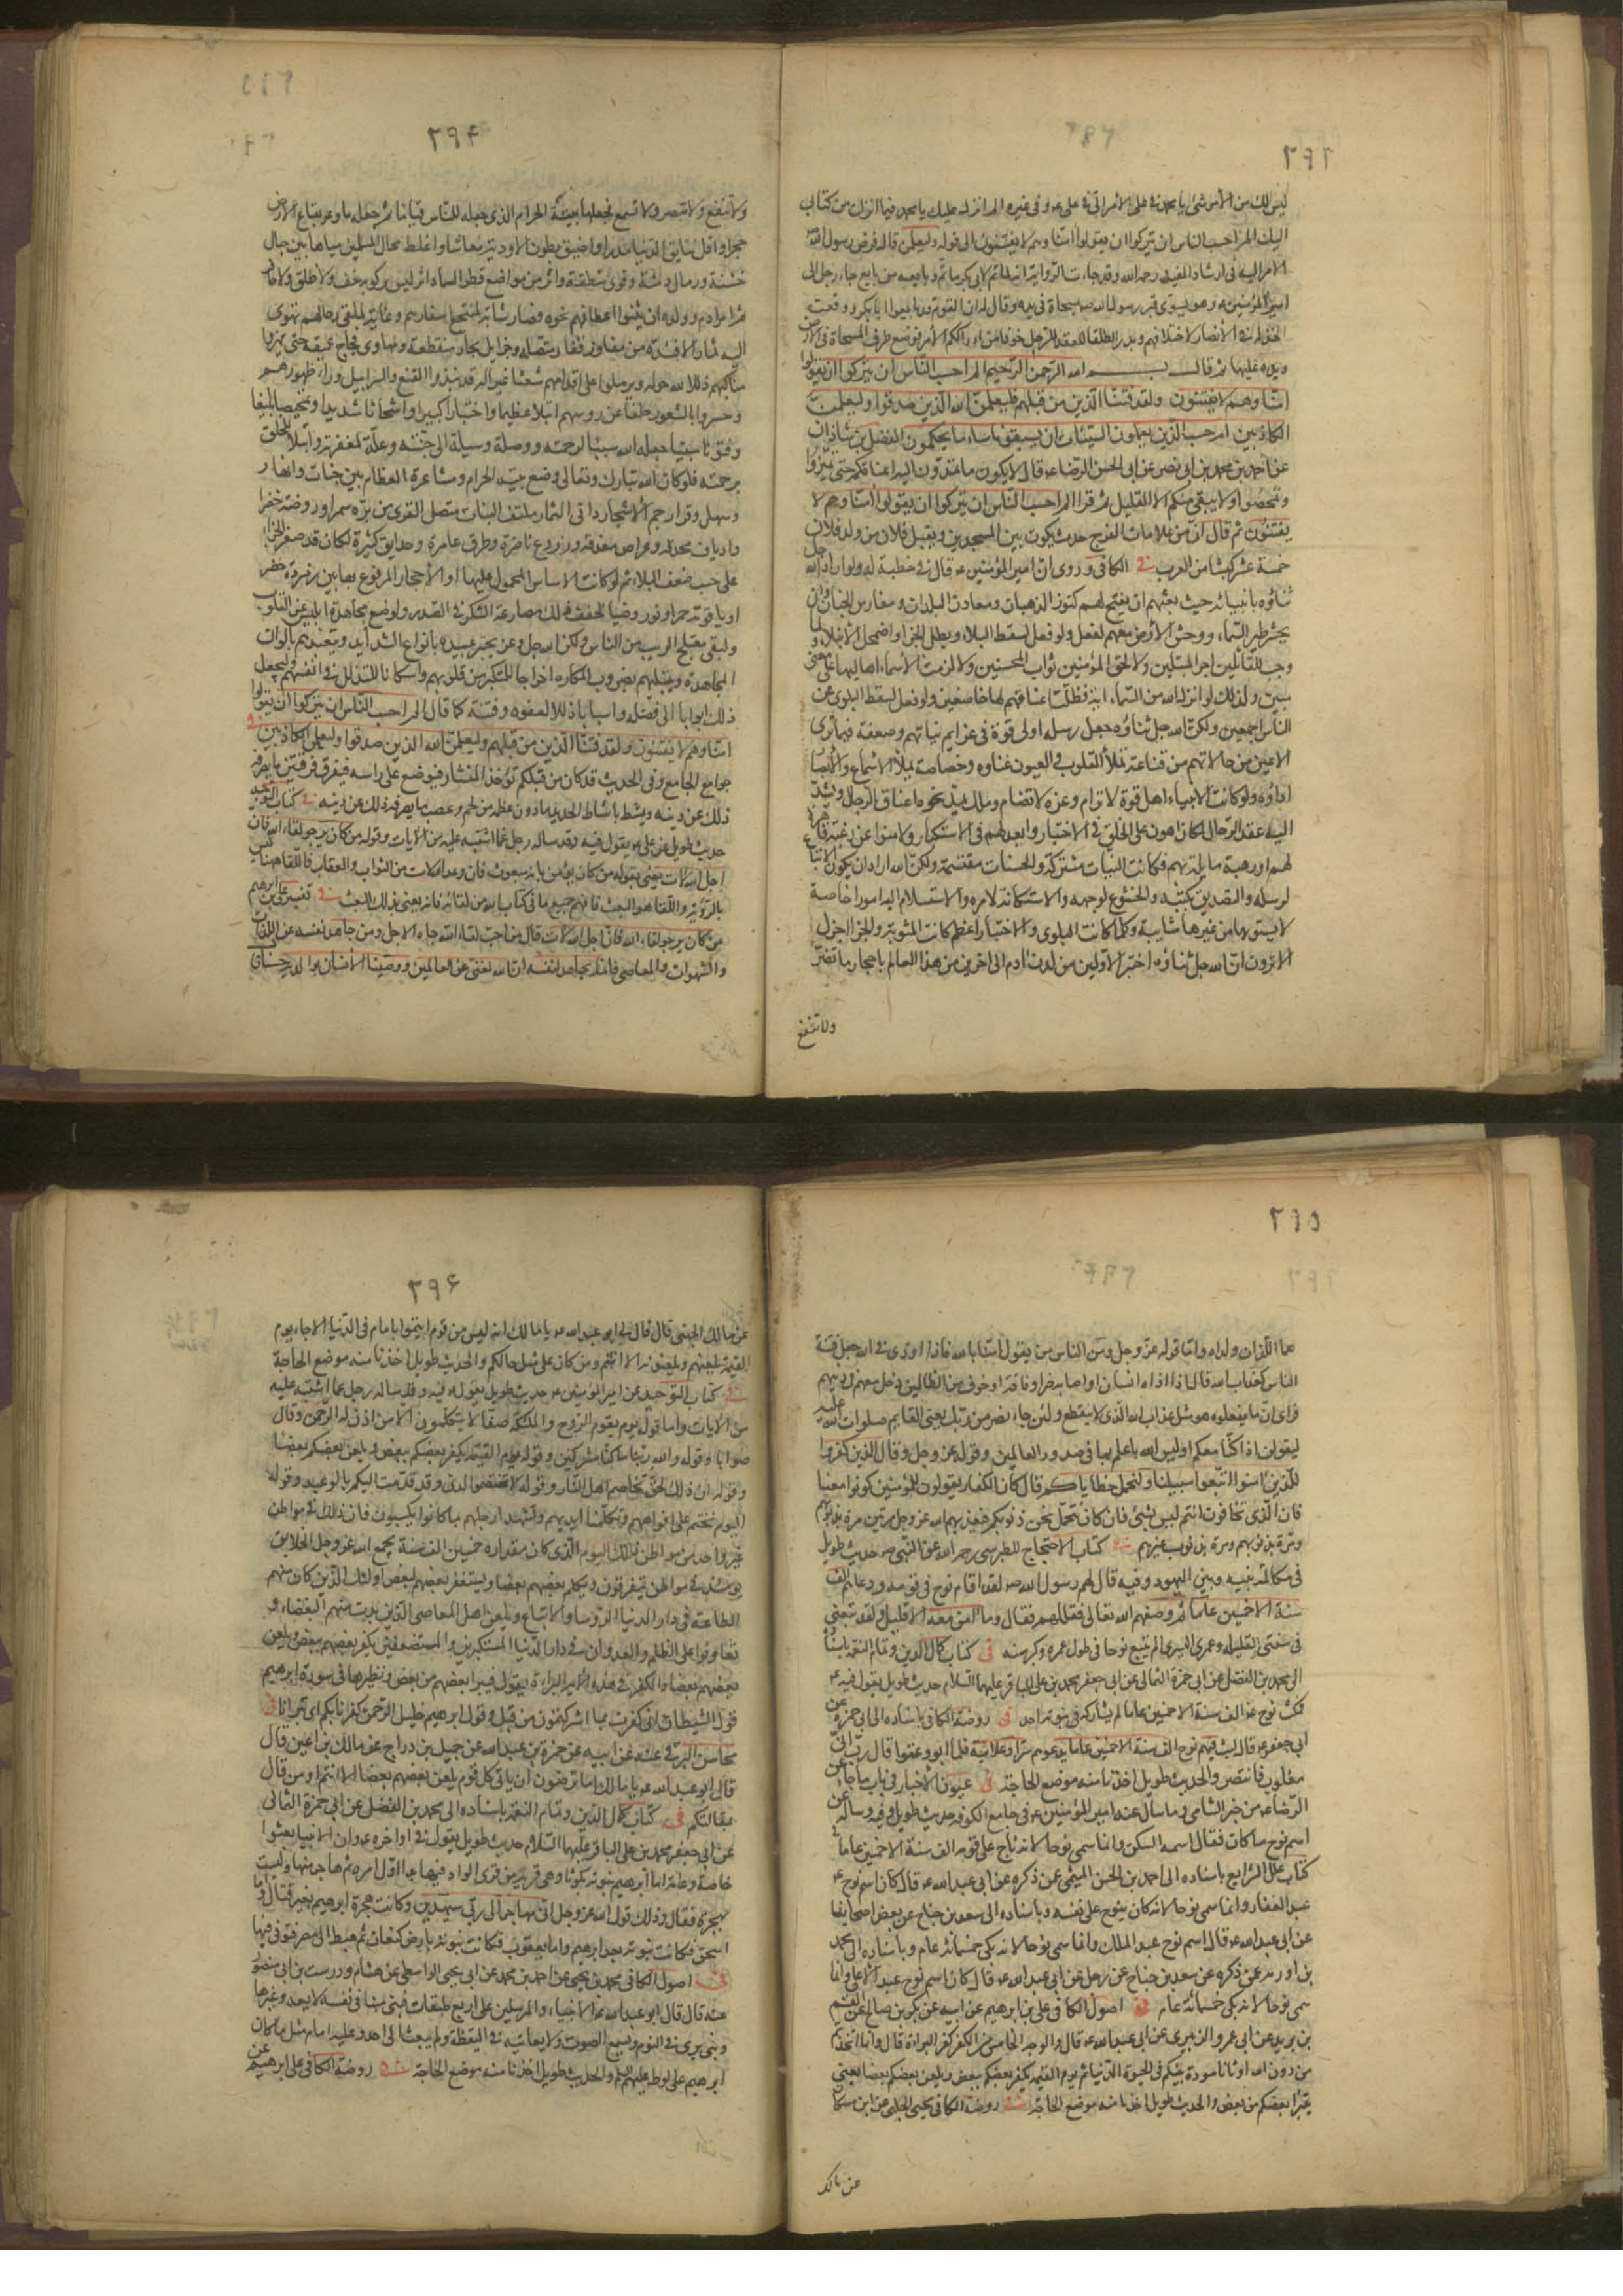 ٢٩٣
ليس لك من الأمر شئ يا محمد في على الأمر الي في على عه وفي غيره الم انزل عليك يا محمد فيما انزل من كتابي
اليك الم احسب الناس ان يتركوا ان يقولوا امنا وهم لا يفتنون الى قوله وليعلمن قال فرض رسول الله
الامر اليه في ارشاد المفيد رحمه الله وقد جاءت الرواية انه لما تم لابي بكر ما تم وبايعه من بايع جاء رجل الى
امير المؤمنين عه وهو يسوى قبر رسول الله صه بمسحاة في يده وقال له ان القوم قد بايعوا ابا بكر ووقعت
الخذلة في الأنصار لاختلافهم وبدر الطلقا للعقد للرجل خوفا من ادراككم الأمر فوضع طرف المسحاة في الأرض
ويده عليها ثم قال بسم الله الرحمن الرحيم الم احسب الناس ان يتركوا ان يقولوا
امنا وهم لا يفتنون ولقد فتنا الذين من قبلهم فليعلمن الله الذين صدقوا وليعلمن
الكاذبين ام حسب الذين يعملون السيئات ان يسبقونا ساء ما يحكمون الفضل بن شاذان
عن احمد بن محمد بن ابي نصر عن ابي الحسن الرضا عه قال لا يكون ما تمدون اليه اعناقكم حتى تميزوا
وتمحصوا ولا يبقى منكم الا القليل ثم قرا الم احسب الناس ان يتركوا ان يقولوا امنا وهم لا
يفتنون ثم قال ان من علامات الفرج حدث يكون بين المسجدين ويقتل فلان من ولد فلان
خمسة عشر كبشا من العرب في الكافي وروى ان امير المؤمنين عه قال في خطبة له ولو اراد الله جل
ثناؤه بانبيائه حيث بعثهم ان يفتح لهم كنوز الذهبان ومعادن البلدان ومغارس الجنان وان
يحشر طير السماء ووحش الأرض معهم لفعل ولو فعل لسقط البلاء وبطل الجزا واضمحل الابتلاء ولما
وجب للقائلين اجر المبتلين ولا لحق المؤمنين ثواب المحسنين ولا لزمت الأسماء اهاليها على معنى
مبين ولذلك لو انزل الله من السماء اية فظلت اعناقهم لها خاضعين ولو فعل لسقط البلوى عن
الناس اجمعين ولكن الله جل ثناؤه جعل رسله اولى قوة في عزايم نياتهم وضعفة فيما ترى
الاعين من حالاتهم من قناعة تملأ القلوب والعيون غناوه وخصاصة يملأ الاسماع والأبصار
اذاؤه ولو كانت الانبياء اهل قوة لا ترام وعزة لا تضام وملك يمد نحوه اعناق الرجال ويشد
اليه عقد الرحال لكان اهون على الخلق في الاختبار وابعد لهم في الاستكبار ولامنوا عن رغبة قاهرة
لهم او رهبة مايلة بهم فكانت النيات مشتركة والحسنات مقتسمة ولكن الله اراد ان يكون الاتباع
لرسله والتصديق بكتبه والخشوع لوجهه والاستكانة لامره والاستسلام اليه امورا خاصة
لا يشوبها من غيرها شايبة وكلما كانت البلوى والاختبار اعظم كانت المثوبة والجزا اجزل
الا ترون ان الله جل ثناؤه اختبر الاولين من لدن ادم الى اخرين من هذا العالم باحجار ما تضر
ولا تنفع
٢٩٤
ولا تنفع ولا تبصر ولا تسمع فجعلها بيته الحرام الذي جعله للناس قياما ثم جعله باوعر بقاع الأرض
حجرا واقل نتايق الدنيا مدرا واضيق بطون الاودية معاشا واغلظ محال المسلمين مياها بين جبال
خشنة ورمال دمثة وقرى منقطعة واثر من مواضع قطر السماء اثر ليس يزكو به خف ولا ظلف ولا حافر
ثم امر ادم وولده ان يثنوا اعطافهم نحوه فصار مثابة لمنتجع اسفارهم وغاية لملقى رحالهم تهوى
اليه ثمار الافئدة من مفاوز قفار متصلة وجزاير بحار منقطعة ومهاوى فجاج عميقة حتى يهزوا
مناكبهم ذللا لله حوله ويرملوا على اقدامهم شعثا غبرا له قد نبذوا القنع والسرابيل وراء ظهورهم
وحسروا بالشعور حلقا عن رؤسهم ابتلاء عظيما واختبارا كبيرا وامتحانا شديدا وتمحيصا بليغا
وقنوتا مبينا جعله الله سببا لرحمته ووصلة ووسيلة الى جنته وعلة لمغفرته وابتلاء للخلق
برحمته فلو كان الله تبارك وتعالى وضع بيته الحرام ومشاعره العظام بين جنات وانهار
وسهل وقرار جم الأشجار داني الثمار ملتف النبات متصل القرى من برة سمراء وروضة خضرا
وارياف محدقة وعراص مغدقة وزروع ناضرة وطرق عامرة وحدايق كثيرة لكان قد صغر الجزا
على حسب ضعف البلاء ثم لو كانت الاساس المحمول عليها او الأحجار المرفوع بها بين زمردة خضرا
او ياقوتة حمرا ونور وضياء لخفف ذلك مصارعة الشك في الصدور ولوضع مجاهدة ابليس عن القلوب
ولنفى معتلج الريب من الناس ولكن الله جل وعز يختبر عبيده بانواع الشدايد ويتعبدهم بالوان
المجاهدة ويبتليهم بضروب المكاره اخراجا للتكبر من قلوبهم واسكانا للتذلل في انفسهم وليجعل
ذلك ابوابا الى فضله واسبابا ذللا لعفوه وفتنة كما قال الم احسب الناس ان يتركوا ان يقولوا
امنا وهم لا يفتنون ولقد فتنا الذين من قبلهم وليعلمن الله الذين صدقوا وليعلمن الكاذبين في
جوامع الجامع وفي الحديث قد كان من قبلكم تؤخذ المنشار فيوضع على راسه فيفرق فرقتين ما يصرفه
ذلك عن دينه ويمشط بامشاط الحديد ما دون عظمه من لحم وعصب ما يصرفه ذلك عن دينه في كتاب التوحيد
حديث طويل عن على عه يقول فيه وقد ساله رجل عما اشتبه عليه من الايات وقوله من كان يرجو لقاء الله فان
اجل الله لات يعني بقوله من كان يؤمن بانه مبعوث فان وعد الله لات من الثواب والعقاب فاللقاء ههنا ليس
بالرؤية واللقا هو البعث فافهم جميع ما في كتاب الله من لقائه فانه يعني بذلك البعث في تفسير على بن ابرهيم
من كان يرجو لقاء الله فان اجل الله لات قال من احب لقاء الله جاءه الاجل ومن جاهد نفسه عن اللذات
والشهوات والمعاصي فانما يجاهد لنفسه ان الله لغني عن العالمين ووصينا الانسان بوالديه حسنا قال
٢٩٥
هما اللذان ولداه واما قوله عز وجل ومن الناس من يقول امنا بالله فاذا اوذى في الله جعل فتنة
الناس كعذاب الله قال اذا اذاه انسان او اصابه ضر او فاقة او خوف من الظالمين دخل معهم في دينهم
فراى ان ما يفعلوه هو مثل عذاب الله الذي لا ينقطع ولئن جاء نصر من ربك يعني القايم صلوات الله عليه
ليقولن اذا كنا معكم اوليس الله باعلم بما في صدور العالمين وقوله عز وجل وقال الذين كفروا
للذين امنوا اتبعوا سبيلنا ولنحمل خطاياكم قال كان الكفار يقولون للمؤمنين كونوا معنا
فان الذي تخافون انتم ليس بشئ فان كان نتحمل نحن ذنوبكم فيعذبهم الله عز وجل مرتين مرة بذنوبهم
ومرة بذنوب غيرهم في كتاب الاحتجاج للطبرسي رحمه الله عن النبي صه حديث طويل
في مكالمة بينه وبين اليهود وفيه قال لهم رسول الله صه لقد اقام نوح في قومه ودعاهم الف
سنة الا خمسين عاما ثم وصفهم الله تعالى فقللهم فقال وما امن معه الا قليل ولقد تبعني
في سنتي القليلة وعمري اليسير ما لم يتبع نوحا في طول عمره وكبر سنه في كتاب كمال الدين وتمام النعمة باسناده
الى محمد بن الفضل عن ابي حمزة الثمالي عن ابي جعفر محمد بن على الباقر عليهما السلام حديث طويل يقول فيه عه
فمكث نوح عه الف سنة الا خمسين عاما لم يشاركه في نبوته احد في روضة الكافي باسناده الى ابي حمزة عن
ابي جعفر عه قال لبث فيهم نوح الف سنة الا خمسين عاما يدعوهم سرا وعلانية فلما ابوا وعتوا قال رب انى
مغلوب فانتصر والحديث طويل اخذنا منه موضع الحاجة في عيون الأخبار في باب ما جاء عن
الرضا عه من خبر الشامي وما سال عنه امير المؤمنين عه في جامع الكوفة حديث طويل وفيه وساله عن
اسم نوح ما كان فقال اسمه السكن وانما سمى نوحا لانه ناح على قومه الف سنة الا خمسين عاما في
كتاب علل الشرايع باسناده الى احمد بن الحسن الميثمي عمن ذكره عن ابي عبد الله عه قال كان اسم نوح عه
عبد الغفار وانما سمى نوحا لانه كان ينوح على نفسه وباسناده الى سعد بن جناح عن بعض اصحابنا
عن ابي عبد الله عه قال اسم نوح عبد الملك وانما سمى نوحا لانه بكى خمسمائة عام وباسناده الى محمد
بن اورمه عمن ذكره عن سعد بن جناح عن رجل عن ابي عبد الله عه قال كان اسم نوح عبد الاعلى وانما
سمى نوحا لانه بكى خمسمائة عام في اصول الكافي على بن ابرهيم عن ابيه عن بكر بن صالح عن القسم
بن بريد عن ابي عمرو الزبيري عن ابي عبد الله عه قال والوجه الخامس من الكفر كفر البراءة قال وانما اتخذتم
من دون الله اوثانا مودة بينكم في الحيوة الدنيا ثم يوم القيمة يكفر بعضكم ببعض ويلعن بعضكم بعضا يعني
يتبرأ بعضكم من بعض والحديث طويل اخذنا منه موضع الحاجة في روضة الكافي يحيى الحلبي عن ابن مسكان
عن مالك
٢٩۶
عن مالك الجهني قال قال لي ابو عبد الله عه يا مالك انه ليس من قوم ايتموا بامام في الدنيا الا جاء يوم
القيمة يلعنهم ويلعنونه الا انتم ومن كان على مثل حالكم والحديث طويل اخذنا منه موضع الحاجة
في كتاب التوحيد عن امير المؤمنين عه حديث طويل يقول فيه وقد ساله رجل عما اشتبه عليه
من الايات واما قوله يوم يقوم الروح والملئكة صفا لا يتكلمون الا من اذن له الرحمن وقال
صوابا وقوله والله ربنا ما كنا مشركين وقوله يوم القيمة يكفر بعضكم ببعض ويلعن بعضكم بعضا
وقوله ان ذلك لحق تخاصم اهل النار وقوله لا تختصموا لدى وقد قدمت اليكم بالوعيد وقوله
اليوم نختم على افواههم وتكلمنا ايديهم وتشهد ارجلهم بما كانوا يكسبون فان ذلك في مواطن
غير واحد من مواطن ذلك اليوم الذي كان مقداره خمسين الف سنة يجمع الله عز وجل الخلايق
يومئذ في مواطن يتفرقون ويكلم بعضهم بعضا ويستغفر بعضهم لبعض اولئك الذين كان منهم
الطاعة في دار الدنيا الرؤسا والاتباع ويلعن اهل المعاصي الذين بدت منهم البغضاء و
تعاونوا على الظلم والعدوان في دار الدنيا المستكبرين والمستضعفين يكفر بعضهم ببعض ويلعن
بعضهم بعضا والكفر في هذه الاية البراءة يقول فيبرأ بعضهم من بعض ونظيرها في سورة ابرهيم
قول الشيطان اني كفرت بما اشركتمون من قبل وقول ابرهيم خليل الرحمن كفرنا بكم اى تبرانا في
محاسن البرقي عنه عن ابيه عن حمزة بن عبد الله عن جميل بن دراج عن مالك بن اعين قال
قال ابو عبد الله عه يا مالك اما ترضون ان ياتي كل قوم يلعن بعضهم بعضا الا انتم ومن قال
بمقالتكم في كتاب كمال الدين وتمام النعمة باسناده الى محمد بن الفضل عن ابي حمزة الثمالي
عن ابي جعفر محمد بن على الباقر عليهما السلام حديث طويل يقول في اواخره عه وان الانبيا بعثوا
خاصة وعامة اما ابرهيم نبوته بكوثا وهى قرية من قرى السواد فيها بدا اول امره ثم هاجر منها وليست
بهجرة قتال وذلك قول الله عز وجل اني مهاجر الى ربي سيهدين وكانت هجرة ابرهيم بغير قتال واما
اسحق فكانت نبوته بعد ابرهيم واما يعقوب فكانت نبوته بارض كنعان ثم هبط الى مصر فتوفى فيها
في اصول الكافي محمد بن يحيى عن احمد بن محمد عن ابي يحيى الواسطي عن هشام ودرست بن ابي منصور
عنه قال قال ابو عبد الله عه الانبياء والمرسلين على اربع طبقات فنبى منبا في نفسه لا يعدو غيرها
ونبى يرى في النوم ويسمع الصوت ولا يعاينه في اليقظة ولم يبعث الى احد وعليه امام مثل ما كان
ابرهيم على لوط عليهما السلم والحديث طويل اخذنا منه موضع الحاجة في روضة الكافي على بن ابرهيم عن